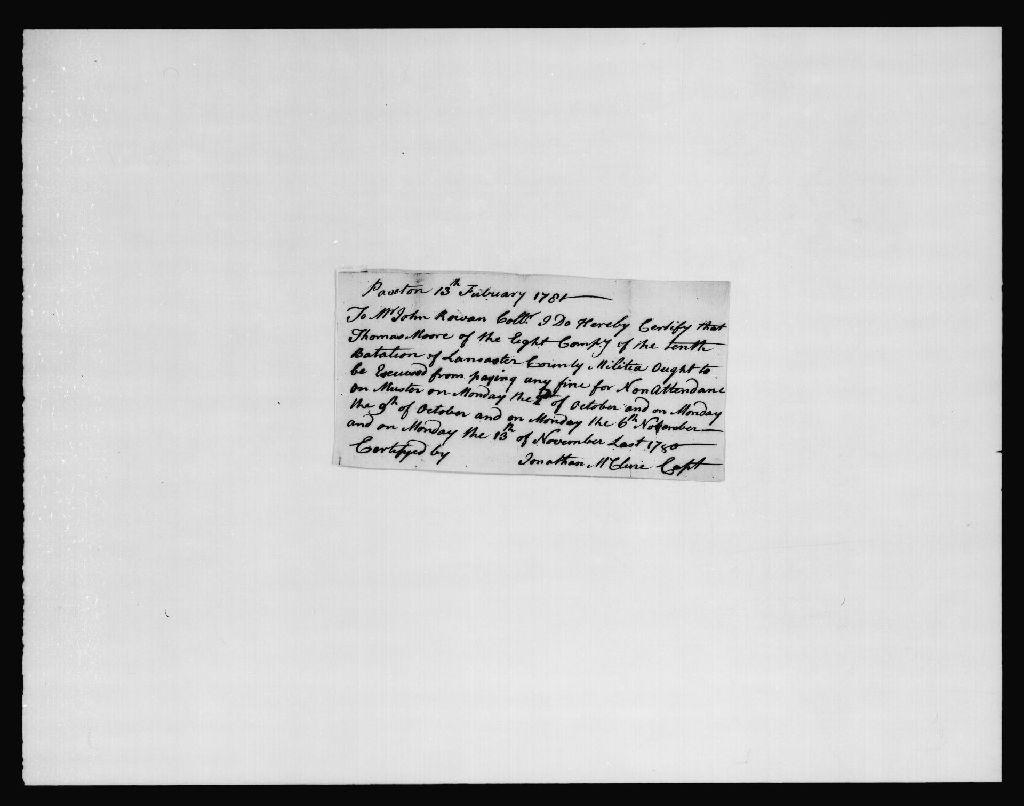 Paxton 13th Febuary 1781
To Mr John Rowan Collr. I Do Hereby Certify that
Thomas Moore of the Eight Compy of the tenth
Batalion of Lancaster County Militia Ought to
be Excused from paying any fine for Non Attendance
on Muster on Monday the 2d of October and on Monday
the 9th of October and on Monday the 6th November
and on Monday the 13th of November Last 1780
Certifyed by Jonathan McClure Capt